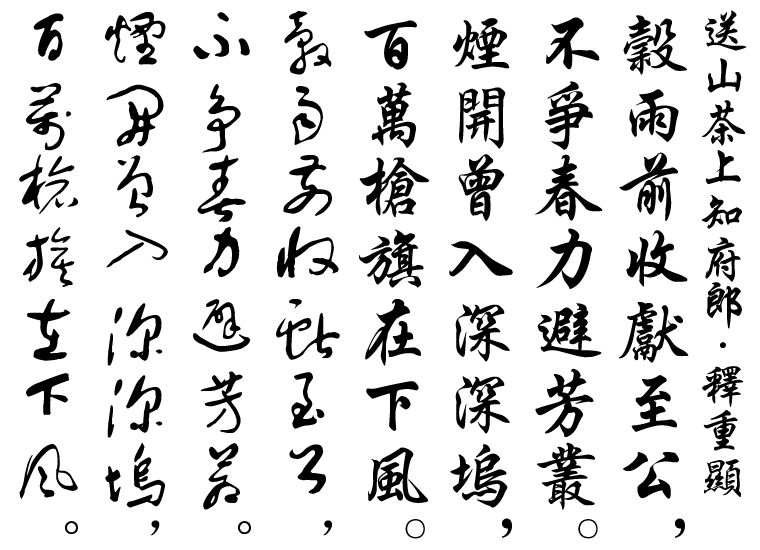 送山茶上知府郎·釋重顯
穀雨前收獻至公，
不爭春力避芳叢。
煙開曾入深深塢，
百萬槍旗在下風。
穀雨前收獻至公，
不爭春力避芳叢。
煙開曾入深深塢，
百萬槍旗在下風。